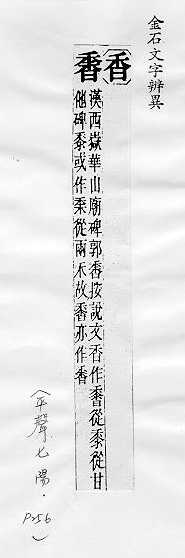 金石文字辨異
（香）
漢西嶽華山廟碑郭香按說文香作𪏽從黍從甘
他碑黍或作從兩禾故香亦作香
（平聲七陽．P256）